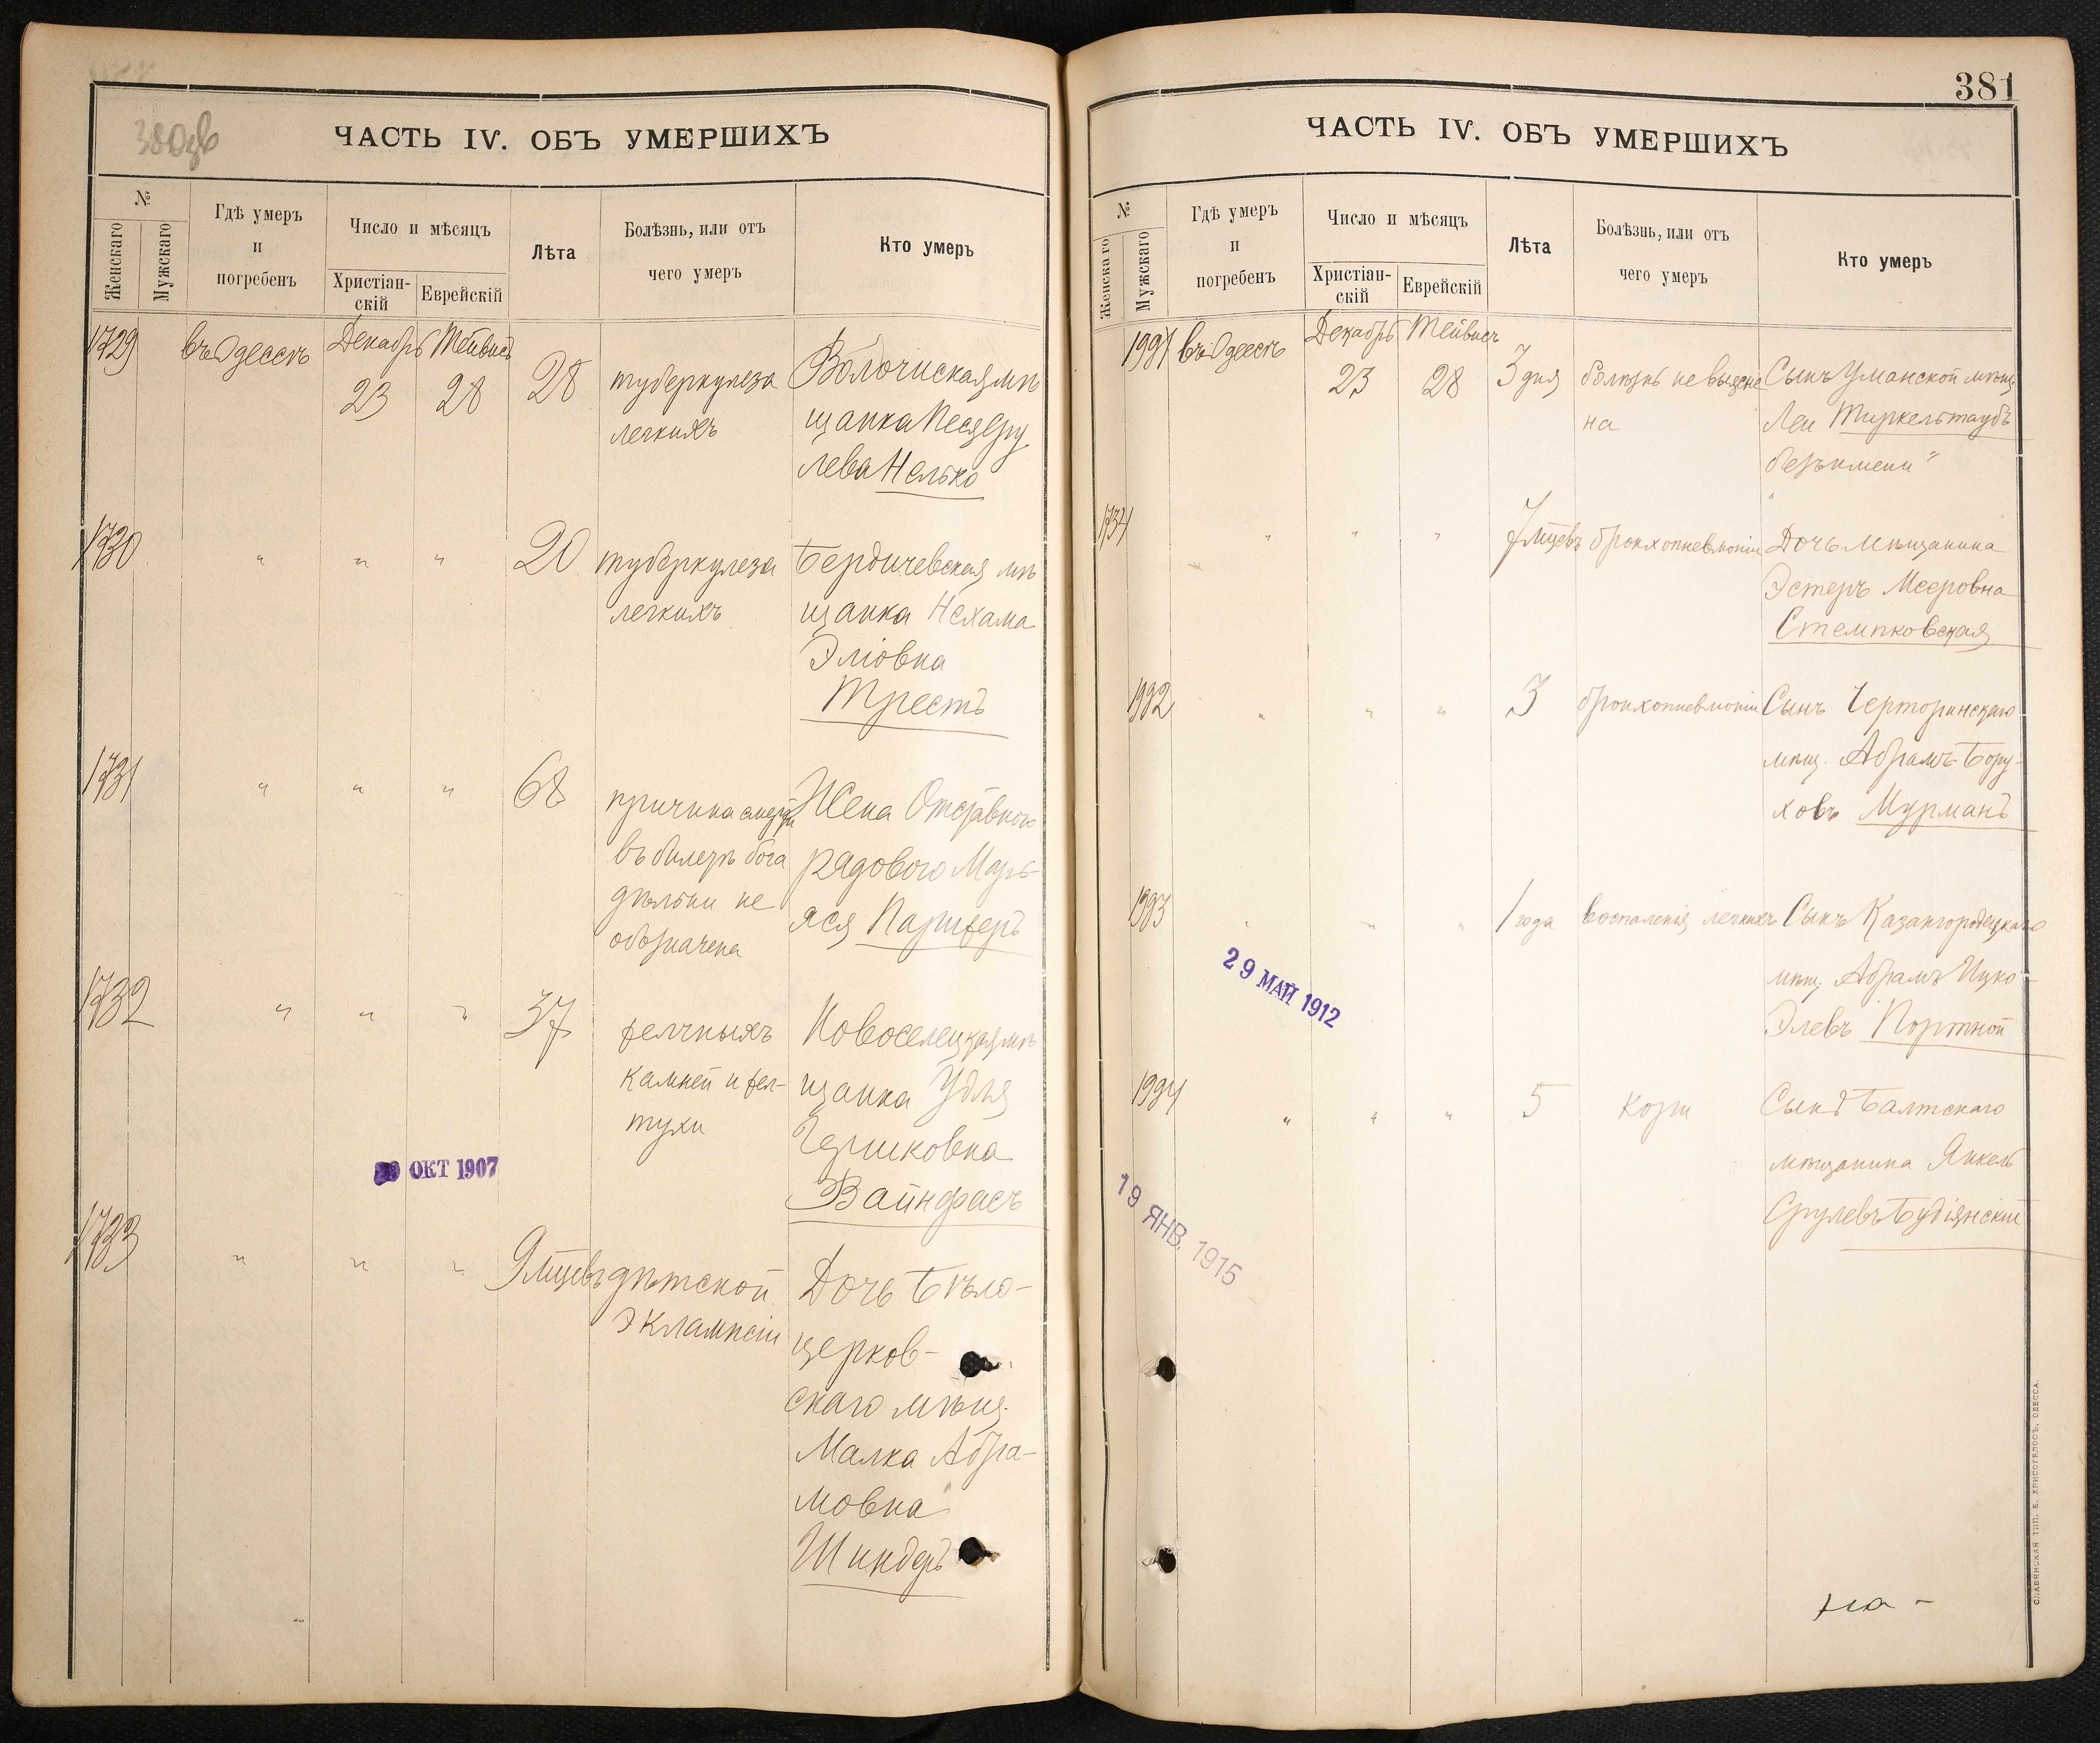 380 об
ЧАСТЬ IV. ОБЪ УМЕРШИХЪ
№
Женскаго
Мужскаго
Гдѣ умеръ
и
погребенъ
Число и мѣсяцъ
Христіан-
скій
Еврейскій
Лѣта
Болѣзнь, или отъ
чего умеръ
Кто умеръ
1729
въ Одессѣ
Декабрь
Тейвисъ
23
28
28
туберкулеза
легкихъ
Волочиская мѣ
щанка Песя Сру
лева Нелько
1730
" " "
20
туберкулеза
легкихъ
Бердичевская мѣ
щанка Нехама
Эліовна
Трестъ
1731
" " "
68
причина смерти
въ билетѣ бога
дѣльни не
обозначена
Жена Отставного
рядового Марь-
яся Париверъ
1732
" " "
37
желчныхъ
камней и жел-
тухи
Новоселецкая мѣ
щанка Удля
Гершковна
Вайнфасъ
ОКТ 1907
1733
" " "
9 мцевъ
дѣтской
эклампсіи
Дочь Бѣло-
церков-
скаго мѣщ.
Малка Абра-
мовна
Шиндеръ
381
ЧАСТЬ IV. ОБЪ УМЕРШИХЪ
№
Женскаго
Мужскаго
Гдѣ умеръ
и
погребенъ
Число и мѣсяцъ
Христіан-
скій
Еврейскій
Лѣта
Болѣзнь, или отъ
чего умеръ
Кто умеръ
1991
въ Одессѣ
Декабрь
Тейвисъ
23
28
3 дня
болѣзнь не выясне
на
Сынъ Уманской мѣщ.
Леи Тиркельтаубъ
безъ имени"
1734
" " "
7 мцевъ
бронхопневмоніи
Дочь Мѣщанина
Эстеръ Мееровна
Стемпковская
1992
" " "
3
бронхопневмоніи
Сынъ Черторинскаго
мѣщ. Абрамъ Бору-
ховъ Мурманъ
1993
" " "
1 года
воспаленія легкихъ
Сынъ Казангородецкаго
мѣщ. Абрамъ Ицко-
Элевъ Портной
29 МАЙ 1912
1994
" " "
5
кори
Сынъ Балтскаго
мѣщанина Янкель
Срулевъ Будіянскій
19 ЯНВ. 1915
на -
СЛАВЯНСКАЯ ТИП. Е. ХРИСОГЕЛОСЪ, ОДЕССА.